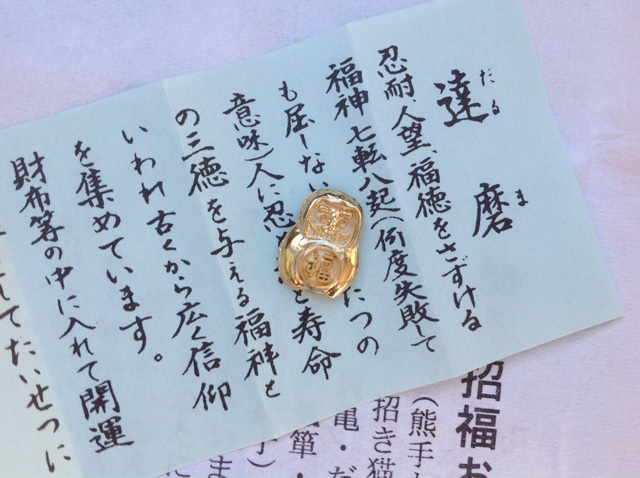 達磨
だるま
忍耐、人望、福徳をさずける
福神 七転八起(何度失敗して
も屈しない
たつの
意味)人に忍
と寿命
の三徳を与える福神と
いわれ古くから広く信仰
を集めています。
財布等の中に入れて開運
してたいせつに
福
招福お
(熊手
招き猫
亀・だ
箪・